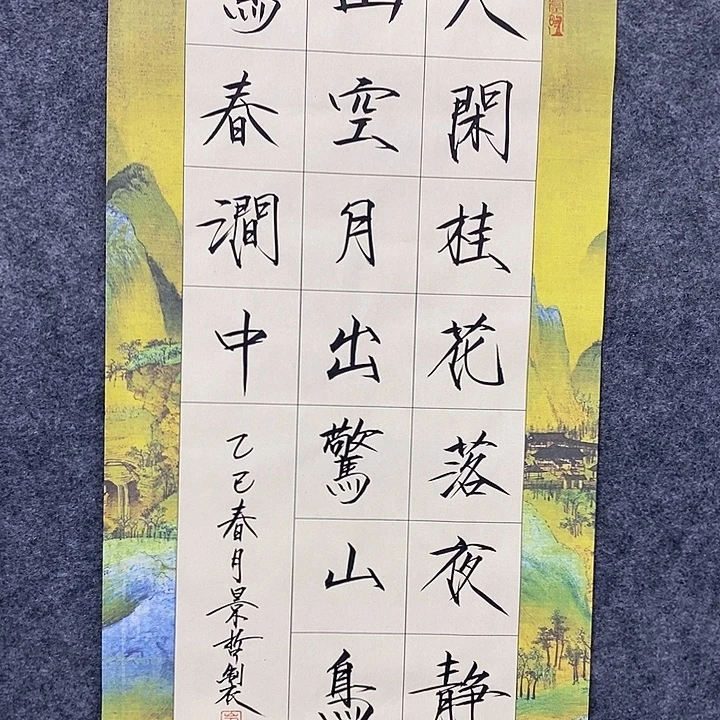 人閑桂花落夜静
山空月出驚山鳥
春澗中
乙巳春月景哲製